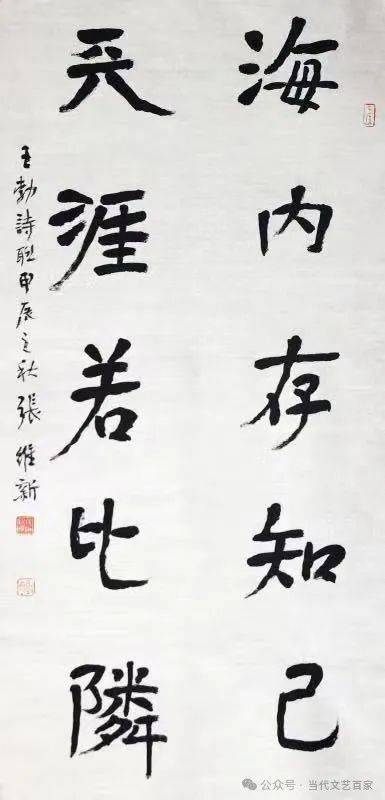 海内存知己
天涯若比隣
王勃詩聯甲辰之秋張維新
公众号·当代文艺百家